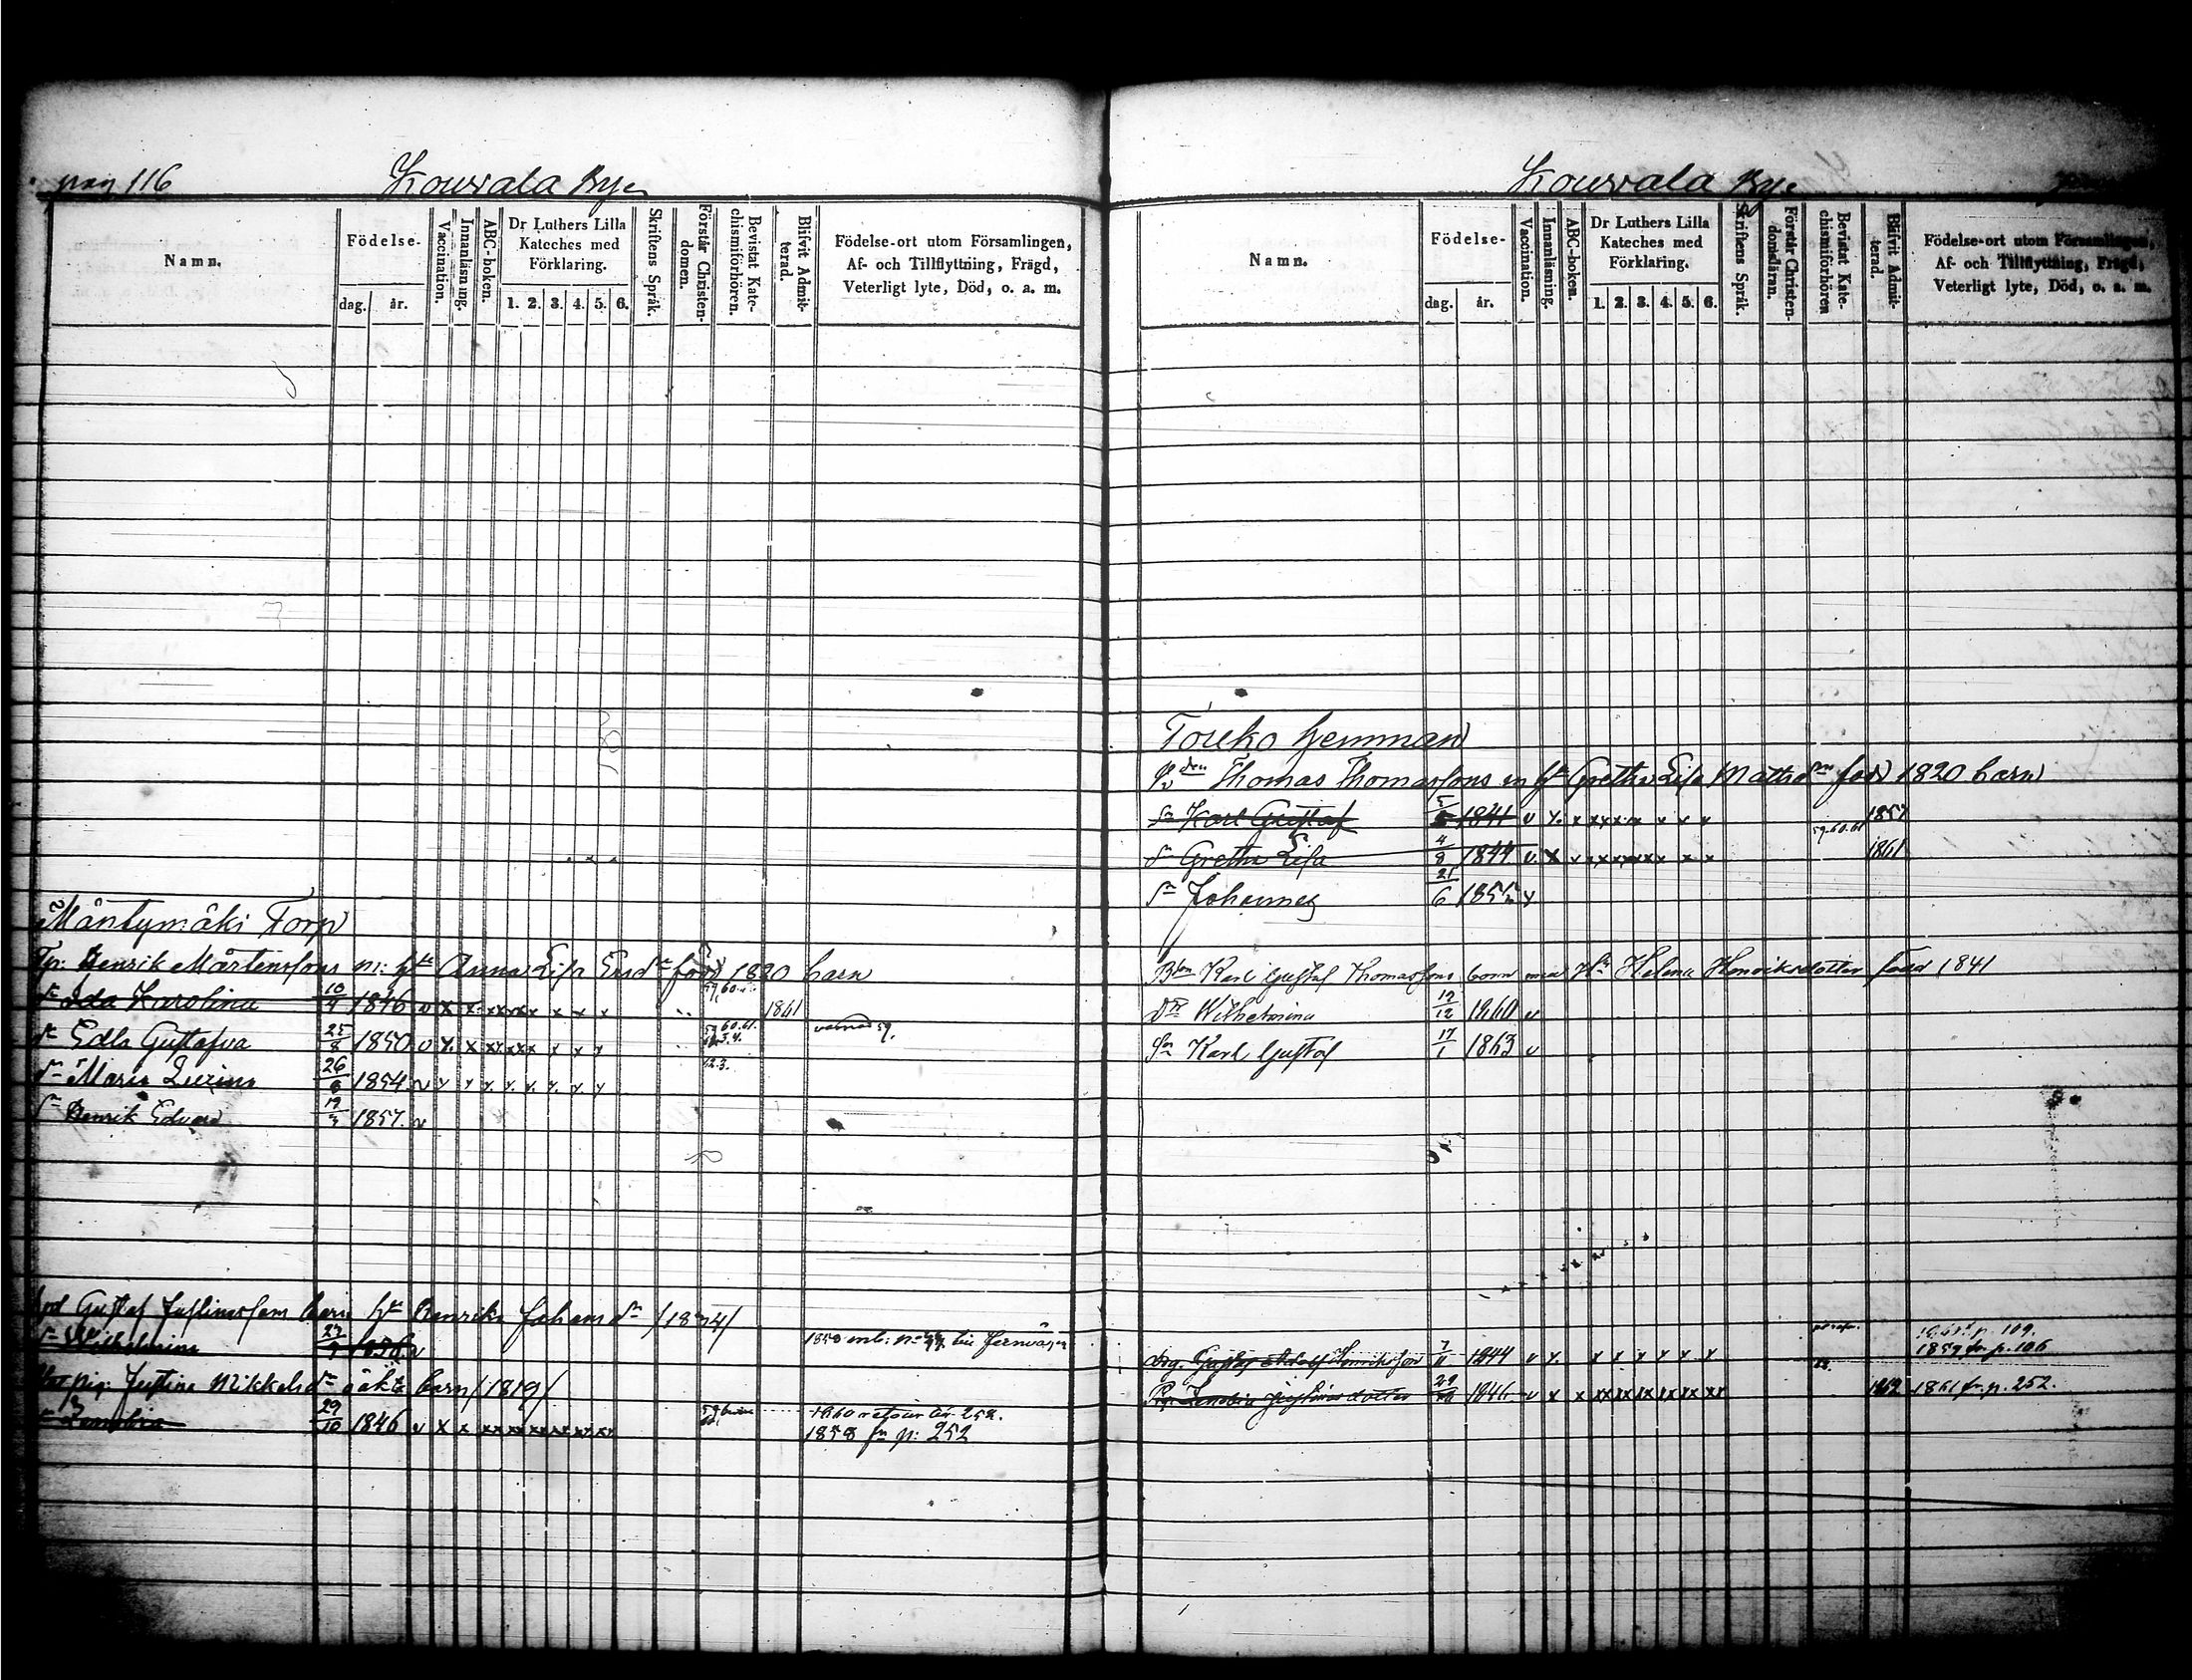 pag 116 Kouvala By
Namn. Födelse- dag. år. Vaccination. Innanläsning. ABC-boken. Dr Luthers Lilla Kateches med Förklaring. 1. 2. 3. 4. 5. 6. Skriftens Språk. Förstår Christendomen. Bevistat Katechismiförhören. Blifvit Admitterad. Födelse-ort utom Församlingen, Af- och Tillflyttning, Frägd, Veterligt lyte, Död, o. a. m.
Mäntymäki Torp
Tp: Henrik Mårtenssons m: hu Anna Lisa Ersdr född 1820 barn
dr Ida Karolina 10/4 1846 v x x x x x x x x 59, 60. 1861
dr Edla Gustafva 25/8 1850 v x x x x x x x x 60. 61. 3. 4.
dr Maria 26/6 1854 v x x x x x x x x 62.3.
Sn Henrik Edvard 19/3 1857. v
Gustaf barn hu Henrika Johansdr /1834/
dr Wilhelmina
pig: Justina Mikkelsdr oäkta barn /1819/
29/10 1846 v x x x x x x x x 1860 retour 252.
1858 fr p: 252
Kouvala By
Namn. Födelse- dag. år. Vaccination. Innanläsning. ABC-boken. Dr Luthers Lilla Kateches med Förklaring. 1. 2. 3. 4. 5. 6. Skriftens Språk. Förstår Christendomsläran. Bevistat Katechismiförhören Blifvit Admitterad. Födelse-ort utom Församlingen, Af- och Tillflyttning, Frägd, Veterligt lyte, Död, o. a. m.
Touko hemman
Thomas Thomassons m hu Gretha Lisa Mattsdr född 1820 barn
Sn Karl Gustaf 5 1841 v x x x x x x x x 1857
dr Gretha Lisa 4/9 1844 v x v x x x x x x 59. 60. 61 1861
Sn Johannes 21/6 1855 v
Bdn Karl Gustaf Thomassons barn med Hu Helena Henriksdotter född 1841
Dr Wilhelmina 12/12 1860 v
Sn Karl Gustaf 17/1 1863 v
drg. Gustaf Adolf Henriksson 7/11 1844 v x x x x x x x 1859 fr. p. 106
Pig. 29/10 1846 v x x x x x x x x 1862 1861 fr. p. 252.